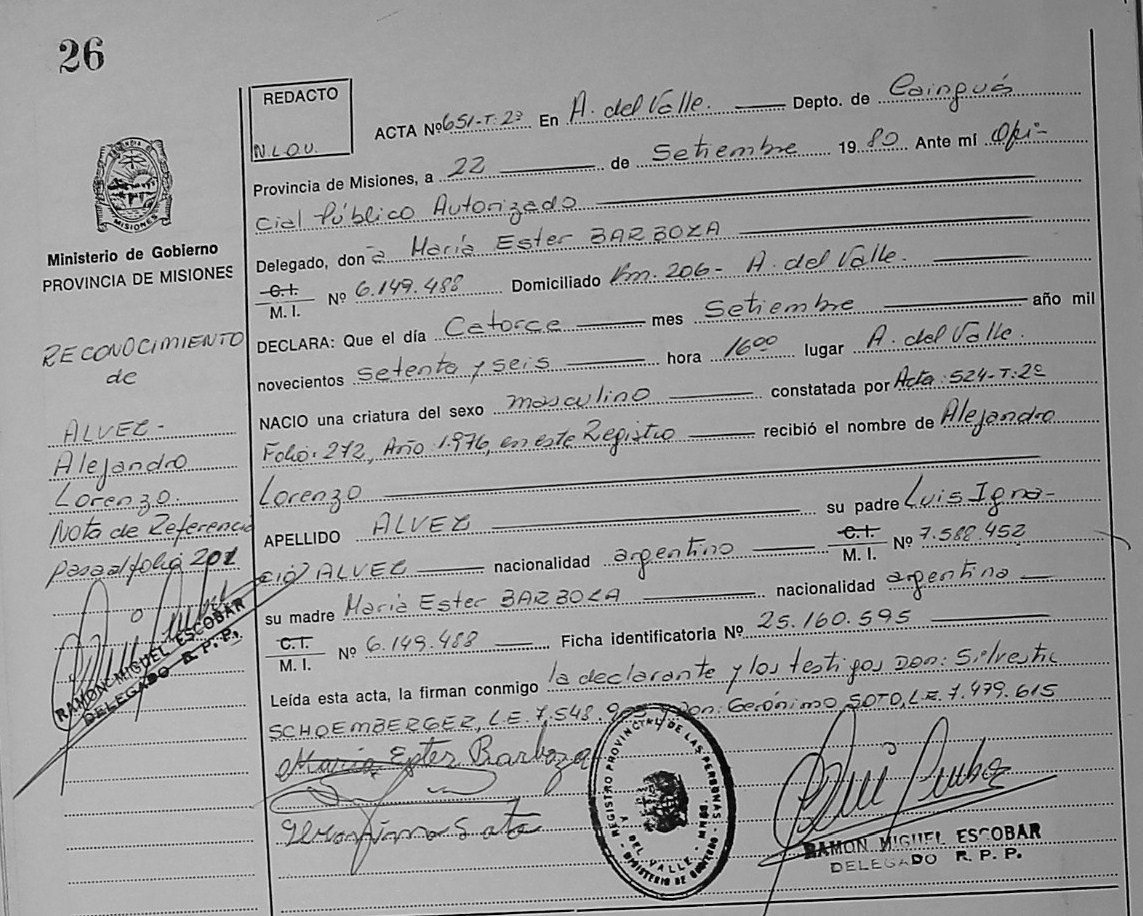 26
REDACTO
N.L.O.U.
ACTA Nº 651-T:2º En A. del Valle. Depto. de Cainguás
Provincia de Misiones, a 22 de Setiembre 1980 Ante mí Ofi-
cial Público Autorizado
Delegado, don a María Ester BARBOZA
C.I. M. I. Nº 6.149.488 Domiciliado Km. 206- A. del Valle.
DECLARA: Que el día Catorce mes Setiembre año mil
novecientos setenta y seis hora 16⁰⁰ lugar A. del Valle.
NACIO una criatura del sexo masculino constatada por Acta: 524-T:2º
Folio: 272, Año 1.976, en este Registro recibió el nombre de Alejandro
Lorenzo
APELLIDO ALVEZ su padre Luis Igna-
cio ALVEZ nacionalidad argentino C.I. M. I. Nº 7.588.452
su madre María Ester BARBOZA nacionalidad argentina
C.I. M. I. Nº 6.149.488 Ficha identificatoria Nº 25.160.595
Leída esta acta, la firman conmigo la declarante y los testigos Don: Silvestre
SCHOEMBERGER, L.E. 7.548. Don: Gerónimo SOTO, L.E. 7.479.615
María Ester Barboza
Gerónimo Soto
REGISTRO PROVINCIAL DE LAS PERSONAS
A. DEL VALLE - MNES.
MINISTERIO DE GOBIERNO
RAMON MIGUEL ESCOBAR
DELEGADO R. P. P.
MISIONES
Ministerio de Gobierno
PROVINCIA DE MISIONES
RECONOCIMIENTO
de
ALVEZ-
Alejandro
Lorenzo.
Nota de Referencia
pasa al folio 201
RAMON MIGUEL ESCOBAR
DELEGADO R. P. P.